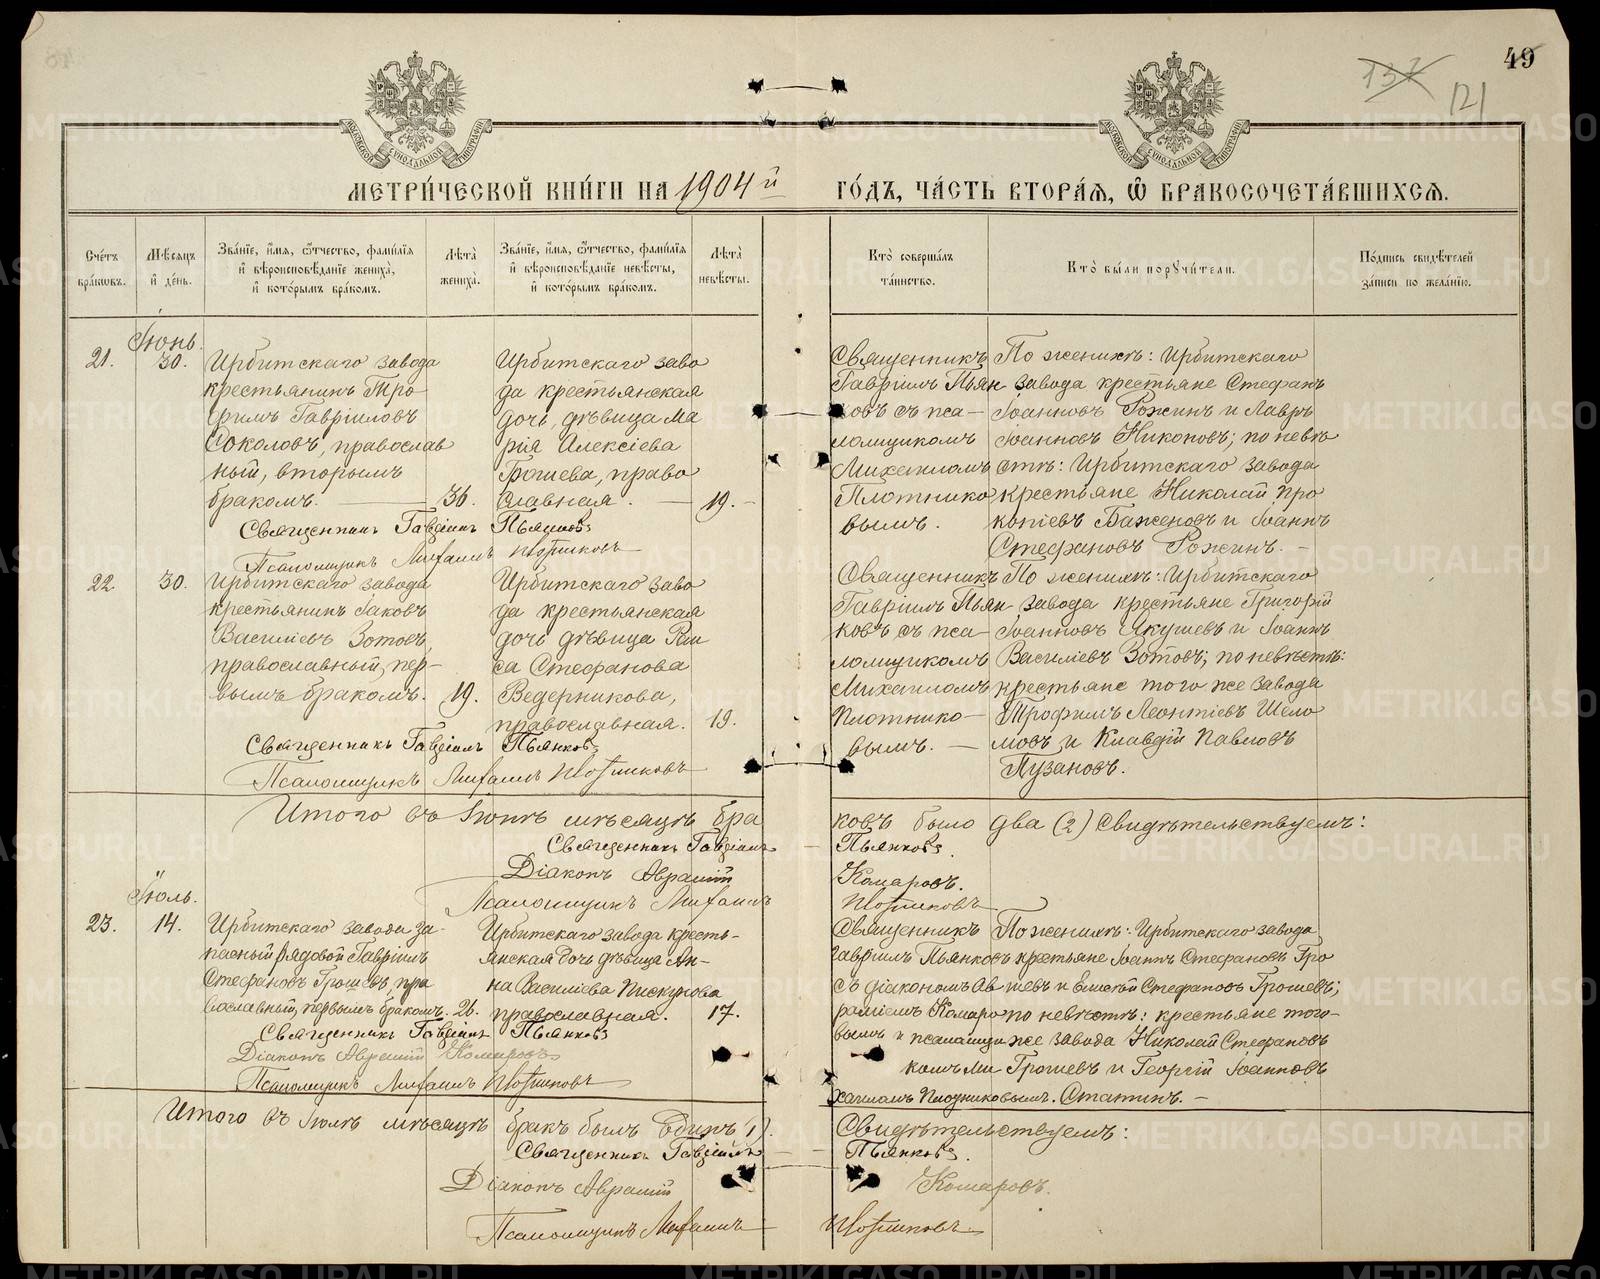 49
137
121
МОСКОВСКОЙ СѴНОДАЛЬНОЙ ТИПОГРАФІИ
МОСКОВСКОЙ СѴНОДАЛЬНОЙ ТИПОГРАФІИ
МЕТРИ́ЧЕСКОЙ КНИ́ГИ НА 1904 й ГО́ДЪ, ЧА́СТЬ ВТОРА́Я, Ѡ҆ БРАКОСОЧЕТА́ВШИХСЯ.
Сче́тъ бра́ковъ.
Мѣ́сяцъ и҆ де́нь.
Зва́нїе, и҆́мя, ѻ҆́тчество, фами́лїя и҆ вѣроисповѣ́данїе жениха̀, и҆ кото́рымъ бра́комъ.
Лѣта̀ жениха̀.
Зва́нїе, и҆́мя, ѻ҆́тчество, фами́лїя и҆ вѣроисповѣ́данїе невѣ́сты, и҆ кото́рымъ бра́комъ.
Лѣта̀ невѣ́сты.
Кто̀ соверша́лъ та́инство.
Кто̀ бы́ли порꙋчи́тели.
По́дпись свидѣ́телей за́писи по жела́нїю.
Іюнь.
21.
30.
Ирбитскаго завода
крестьянинъ Тро-
фимъ Гавріиловъ
Соколовъ, православ
ный, вторымъ
бракомъ.
36.
Ирбитскаго заво
да крестьянская
дочь, дѣвица Ма
рія Алексіева
Грошева, право
славная.
19.
Священникъ
Гавріилъ Пьян
ковъ съ пса-
ломщикомъ
Михаиломъ
Плотнико
вымъ.
По женихѣ: Ирбитскаго
завода крестьяне Стефанъ
Іоанновъ Рожинъ и Лавръ
Іоанновъ Никоновъ; по невѣ
стѣ: Ирбитскаго завода
крестьяне Николай Про
копіевъ Баженовъ и Іоаннъ
Стефановъ Рожинъ.
Священникъ Гавріилъ Пьянковъ
Псаломщикъ Михаилъ Плотниковъ
22
30.
Ирбитскаго завода
крестьянинъ Іаковъ
Василіевъ Зотовъ,
православный, пер-
вымъ бракомъ.
19.
Ирбитскаго заво
да крестьянская
дочь дѣвица Раи
са Стефанова
Ведерникова,
православная.
19.
Священникъ
Гавріилъ Пьян
ковъ съ пса-
ломщикомъ
Михаиломъ
Плотнико-
вымъ.
По женихѣ: Ирбитскаго
завода крестьяне Григорій
Іоанновъ Якушевъ и Іоаннъ
Василіевъ Зотовъ; по невѣстѣ:
крестьяне того же завода
Трофимъ Леонтіевъ Шело
мовъ и Клавдій Павловъ
Пузановъ.
Священникъ Гавріилъ Пьянковъ
Псаломщикъ Михаилъ Плотниковъ
Итого въ Іюнѣ мѣсяцѣ браковъ было два (2) Свидѣтельствуемъ:
Священникъ Гавріилъ Пьянковъ.
Діаконъ Аврамій Комаровъ.
Псаломщикъ Михаилъ Плотниковъ
Іюль.
23.
14.
Ирбитскаго завода за-
пасный рядовой Гавріилъ
Стефановъ Грошевъ, пра
вославный, первымъ бракомъ.
26.
Ирбитскаго завода кресть-
янская дочь дѣвица Ан-
на Василіева Пискунова
православная.
17.
Священникъ
Гавріилъ Пьянковъ
съ діакономъ Ав
раміемъ Комаро
вымъ и псаломщи
комъ Ми
хаиломъ Плотниковымъ.
По женихѣ: Ирбитскаго завода
крестьяне Іоаннъ Стефановъ Гро
шевъ и Елисей Стефановъ Грошевъ;
по невѣстѣ: крестьяне того-
же завода Николай Стефановъ
Грошевъ и Георгій Іоанновъ
Статинъ.
Священникъ Гавріилъ Пьянковъ
Діаконъ Аврамій Комаровъ
Псаломщикъ Михаилъ Плотниковъ
Итого въ Іюлѣ мѣсяцѣ бракъ былъ Одинъ 1). Свидѣтельствуемъ:
Священникъ Гавріилъ Пьянковъ.
Діаконъ Аврамій Комаровъ.
Псаломщикъ Михаилъ Плотниковъ.
METRIKI.GASO-URAL.RU